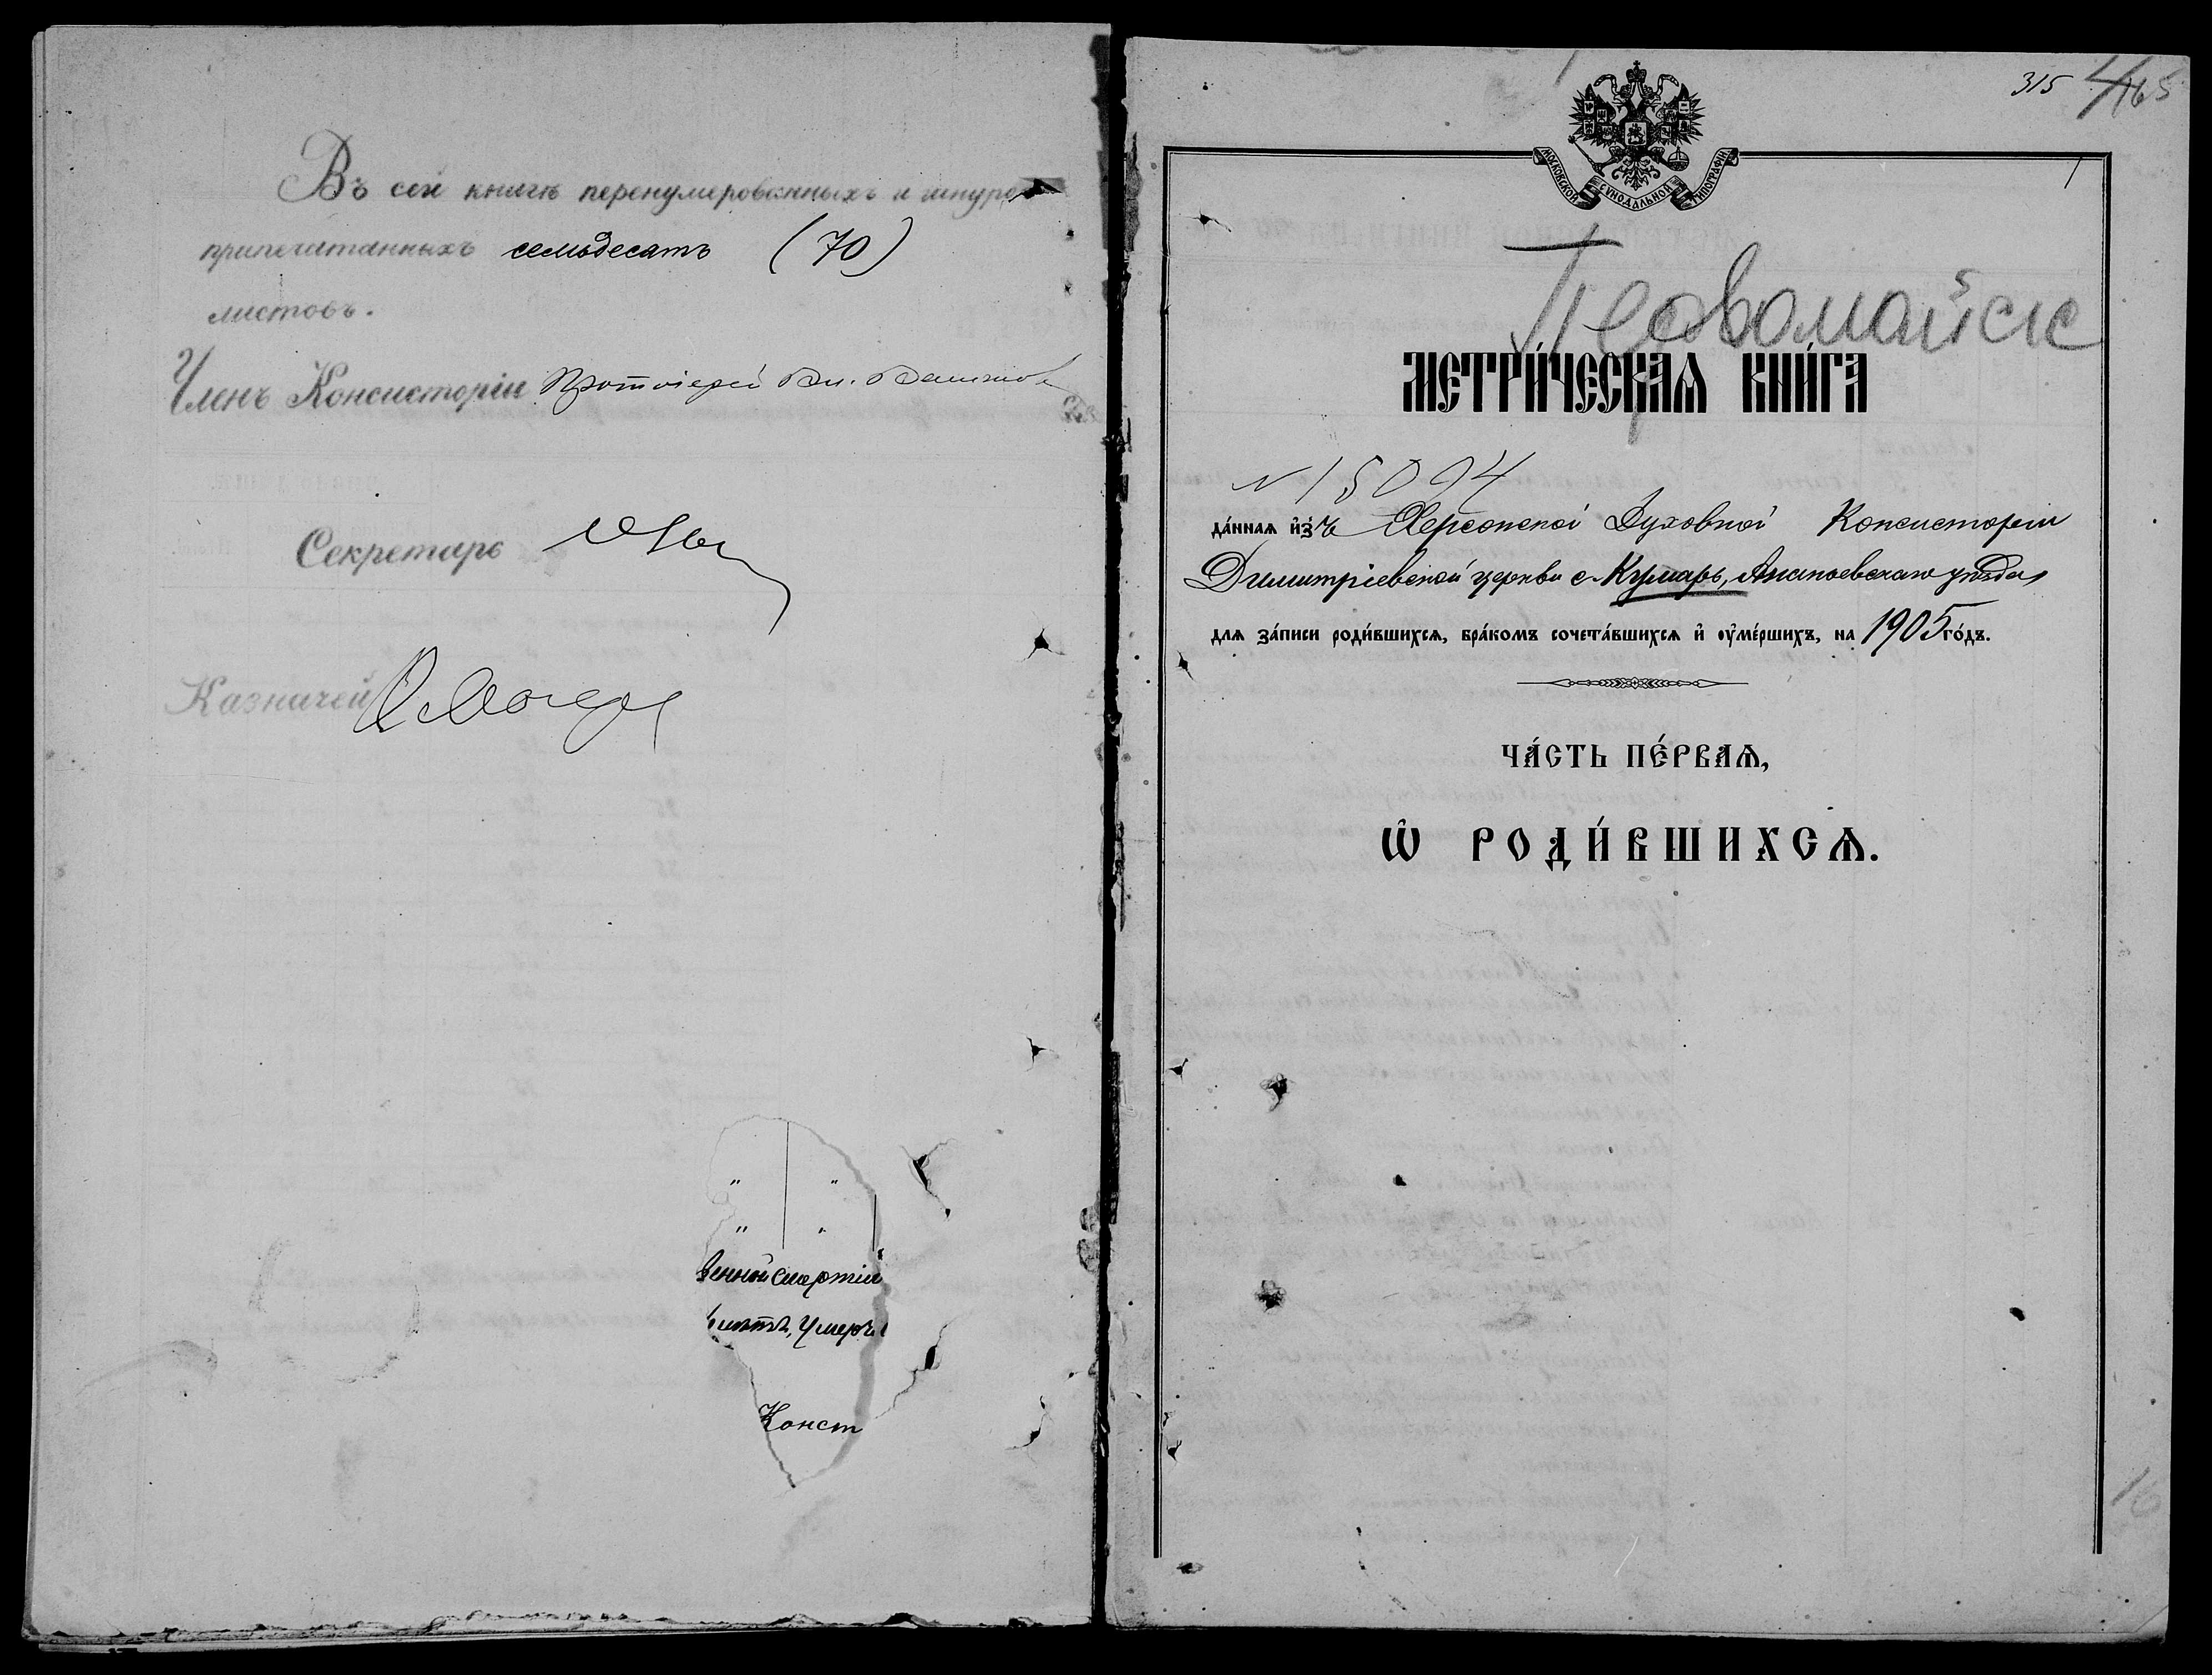 Въ сей книгѣ перенумерованныхъ и шнуро
припечатанныхъ семьдесятъ (70)
листовъ.
Членъ Консисторіи Протоіерей Вл.
Секретарь
Казначей
венной смертiи
Умеръ
Конст
315 465
1
МОСКОВСКОЙ СѴНОДАЛЬНОЙ ТИПОГРАФІИ
Первомайск
МЕТРИ́ЧЕСКАѦ КНИ́ГА
N 15094
да́ннаѧ и҆зъ Херсонской Духовной Консисторіи
Димитріевской церкви с. Кумары, Ананьевскаго уѣзда,
длѧ за́писи роди́вшихсѧ, бра́комъ сочета́вшихсѧ и҆ ѹ҆ме́ршихъ, на 1905 го́дъ.
ЧА́СТЬ ПЕ́РВАѦ,
Ѡ҆ РОДИ́ВШИХСѦ.
16